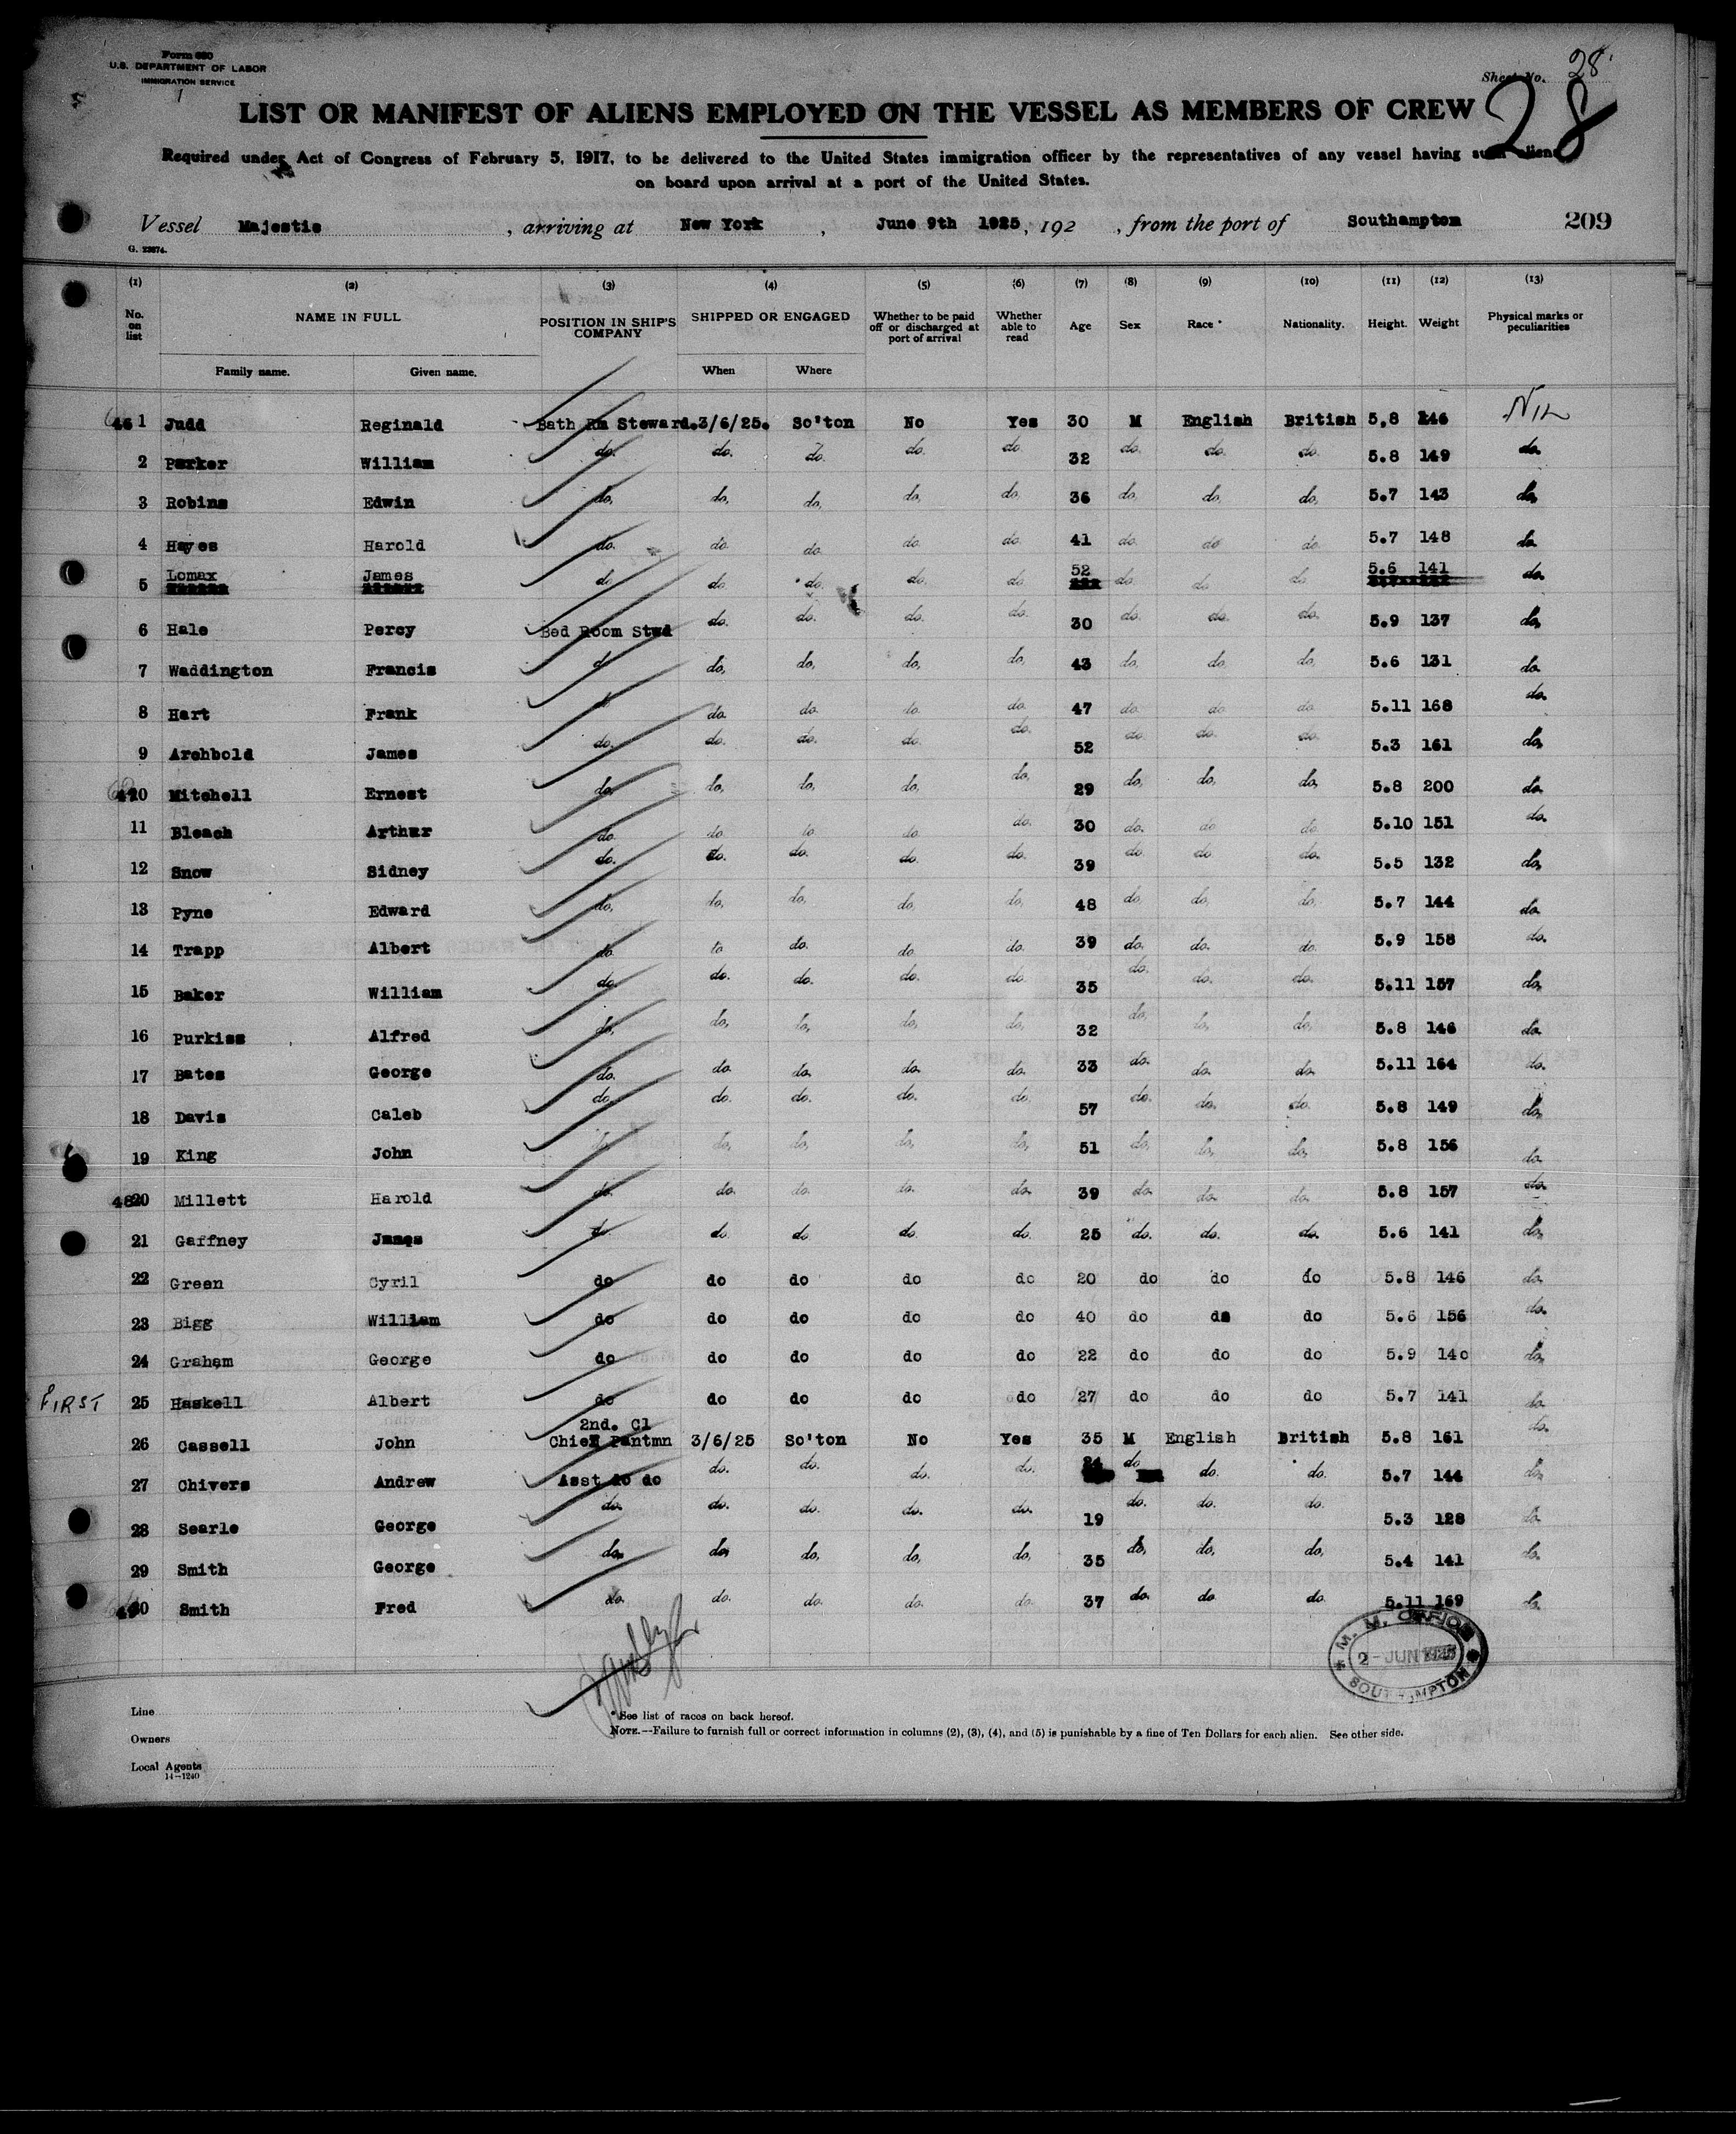 Form 680
U.S. DEPARTMENT OF LABOR
IMMIGRATION SERVICE
Sheet No. 28
28
LIST OR MANIFEST OF ALIENS EMPLOYED ON THE VESSEL AS MEMBERS OF CREW
Required under Act of Congress of February 5, 1917, to be delivered to the United States immigration officer by the representatives of any vessel having such aliens
on board upon arrival at a port of the United States.
Vessel Majestic , arriving at New York , June 9th 1925, 192 , from the port of Southampton 209
(1) (2) (3) (4) (5) (6) (7) (8) (9) (10) (11) (12) (13)
No. on list NAME IN FULL POSITION IN SHIP'S COMPANY SHIPPED OR ENGAGED Whether to be paid off or discharged at port of arrival Whether able to read Age Sex Race * Nationality. Height. Weight Physical marks or peculiarities
Family name. Given name. When Where
1 Judd Reginald Bath Rm Steward. 3/6/25. So'ton No Yes 30 M English British 5,8 146 Nil
2 Parker William do. do. do. do. do 32 do. do. do. 5.8 149 do.
3 Robins Edwin do, do, do, do, do, 36 do, do, do, 5.7 143 do,
4 Hayes Harold do. do. do. do. do. 41 do. do do. 5.7 148 do
5 Lomax James do do do. do. do 52 do do do 5.6 141 do.
6 Hale Percy Bed Room Stwd do. do. do. do. 30 do. do. do. 5.9 137 do,
7 Waddington Francis d do, do, do, do, 43 do, do do, 5.6 131 do.
8 Hart Frank d do. do. do. do. 47 do. do do. 5.11 168 do.
9 Archbold James do. do. do. do. do. 52 do. do. do. 5.3 161 do,
10 Mitchell Ernest do, do, do, do, do, 29 do, do, do, 5.8 200 do.
11 Bleach Arthur do. do. do do do. 30 do. do do 5.10 151 do.
12 Snow Sidney do. do. do. do. do. 39 do do do. 5.5 132 do,
13 Pyne Edward do, do, do, do, do, 48 do, do, do, 5.7 144 do.
14 Trapp Albert do do do. do. do. 39 do. do. do. 5.9 158 do.
15 Baker William do. do. do. do. do. 35 do. do. do. 5.11 157 do,
16 Purkiss Alfred do, do, do, do, do, 32 do, do, do, 5.8 146 do.
17 Bates George do. do. do. do. do. 33 do. do. do. 5.11 164 do.
18 Davis Caleb do. do. do. do. do. 57 do. do. do. 5.8 149 do,
19 King John do, do, do, do, do, 51 do, do, do, 5.8 156 do.
20 Millett Harold do. do. do. do. do. 39 do. do. do. 5.8 157 do.
21 Gaffney James do. do. do. do. do. 25 do. do. do. 5.6 141 do,
22 Green Cyril do do do do do 20 do do do 5.8 146 do.
23 Bigg William do do do do do 40 do do do 5.6 156 do.
24 Graham George do do do do do 22 do do do 5.9 140 do,
FIRST 25 Haskell Albert do do do do do 27 do do do 5.7 141 do
2nd. Cl
26 Cassell John Chief Pantmn 3/6/25 So'ton No Yes 35 M English British 5.8 161 do.
27 Chivers Andrew Asst do do do. do. do. do. 24 do do. do. 5.7 144 do.
28 Searle George do. do. do. do. do. 19 do. do. do. 5.3 128 do
29 Smith George do, do, do, do, do, 35 do, do, do, 5.4 141 do.
30 Smith Fred do. do. do. do. do. 37 do. do. do. 5.11 169 do.
M. M. OFFICE
2 - JUN 1925
SOUTHAMPTON
Line
Owners
Local Agents
14-1240
* See list of races on back hereof.
NOTE.--Failure to furnish full or correct information in columns (2), (3), (4), and (5) is punishable by a fine of Ten Dollars for each alien. See other side.